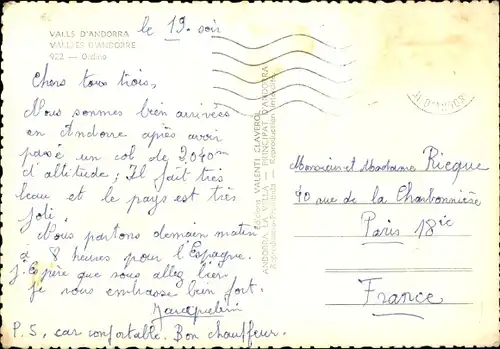 VALLS D'ANDORRA
VALLÉES D'ANDORRE
922 — Ordino
le 19. soir
Chers tous trois,
Nous sommes bien arrivées
en Andorre après avoir
passé un col de 2.040m
d'altitude; Il fait très
beau et le pays est très
joli.
Nous partons demain matin
à 8 heures pour l'Espagne.
J'Espère que vous allez bien.
je vous embrasse bien fort.
P.S. car confortable. Bon chauffeur.
VALENTI CLAVEROL
ANDORRA LA VELLA — PRINCIPAT D'ANDORRA
Reproduction interdite
Monsieur et Madame Ricque
40 rue de la Charbonnière
Paris 18ie
France